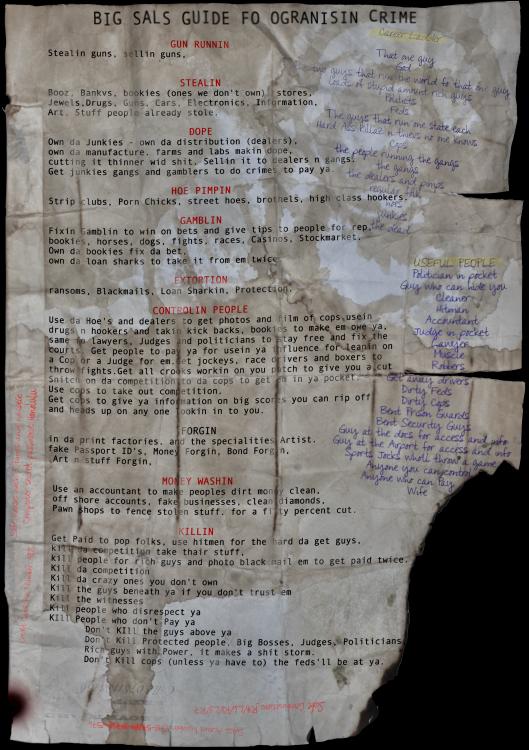 BIG SALS GUIDE FO OGRANISIN CRIME
GUN RUNNIN
Stealin guns, sellin guns,
STEALIN
Booz, Bankvs, bookies (ones we don't own) stores,
Jewels,Drugs, Guns, Cars, Electronics, Information,
Art. Stuff people already stole.
DOPE
Own da Junkies - own da distribution (dealers),
own da manufacture, farms and labs makin dope,
cutting it thinner wid shit. Sellin it to dealers n gangs.
Get junkies gangs and gamblers to do crimes to pay ya.
HOE PIMPIN
Strip clubs, Porn Chicks, street hoes, brothels, high class hookers.
GAMBLIN
Fixin Gamblin to win on bets and give tips to people for rep,
bookies, horses, dogs, fights, races, Casinos, Stockmarket.
Own da bookies fix da bet,
own da loan sharks to take it from em twice
EXTORTION
ransoms, Blackmails, Loan Sharkin, Protection,
CONTROLIN PEOPLE
Use da Hoe's and dealers to get photos and film of cops,usein
drugs n hookers and takin kick backs, bookies to make em owe ya.
same fo lawyers, Judges and politicians to stay free and fix the
courts. Get people to pay ya for usein ya influence for leanin on
a Cop or a Judge for em. Get jockeys, race drivers and boxers to
throw fights.Get all crooks workin on you patch to give you a cut
Snitch on da competition to da cops to get em in ya pocket
Use cops to take out competition.
Get cops to give ya information on big scores you can rip off
and heads up on any one lookin in to you.
FORGIN
in da print factories. and the specialities Artist.
fake Passport ID's, Money Forgin, Bond Forgin,
Art n stuff Forgin,
MONEY WASHIN
Use an accountant to make peoples dirt money clean,
off shore accounts, fake businesses, clean diamonds,
Pawn shops to fence stolen stuff. for a fifty percent cut.
KILLIN
Get Paid to pop folks, use hitmen for the hard da get guys,
kill da competition take thair stuff,
Kill people for rich guys and photo black mail em to get paid twice.
Kill da competition
Kill da crazy ones you don't own
Kill the guys beneath ya if you don't trust em
Kill the witnesses
Kill people who disrespect ya
Kill People who don't Pay ya
Don't KIll the guys above ya
Don't Kill Protected people, Big Bosses, Judges, Politicians,
Rich guys with Power, it makes a shit storm.
Don't Kill cops (unless ya have to) the feds'll be at ya.
Career Ladder
That one guy
God
guys that run the world fo that one guy
Loads of stupid amount rich guys
Feds
The guys that run me state each
Hard Ass Killaz n thievs no one knows
Cops
the people running the gangs
the gangs
the dealers and pimps
regular folk
hoes
junkies
the dead
USEFUL PEOPLE
Politician in pocket
Guy who can hide you
Cleaner
Hitman
Accountant
Judge in pocket
Lawyer
Muscle
Robbers
Get away drivers
Dirty Feds
Dirty Cops
Bent Prison Guards
Bent Security Guys
Guy at the docs for access and info
Guy at the Airport for access and info
Sports Jocks who'll throw a game
Anyone you can control
Anyone who can pay
Wife